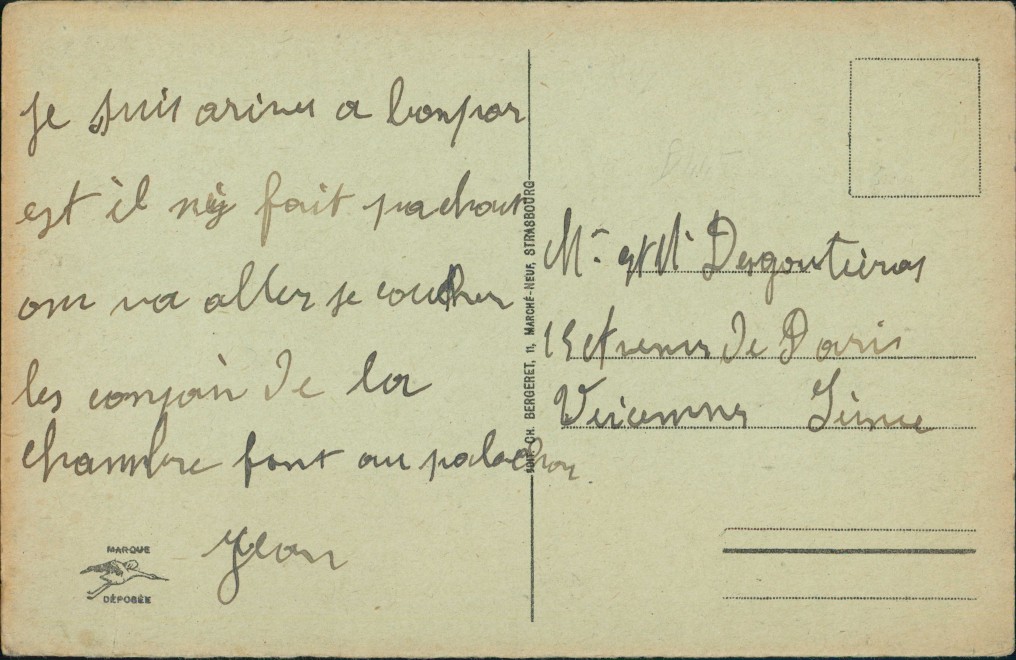 je suis arives a bonpor
est il n'éy fait pachout
om va aller se coucher
les conpain de la
chambre font au polochon
Jean
MARQUE
DÉPOSÉE
EDIT. CH. BERGERET, 11, MARCHÉ-NEUF, STRASBOURG
Mr et Me Desgoutieras
15 Avenus de Paris
Veicennes Seine